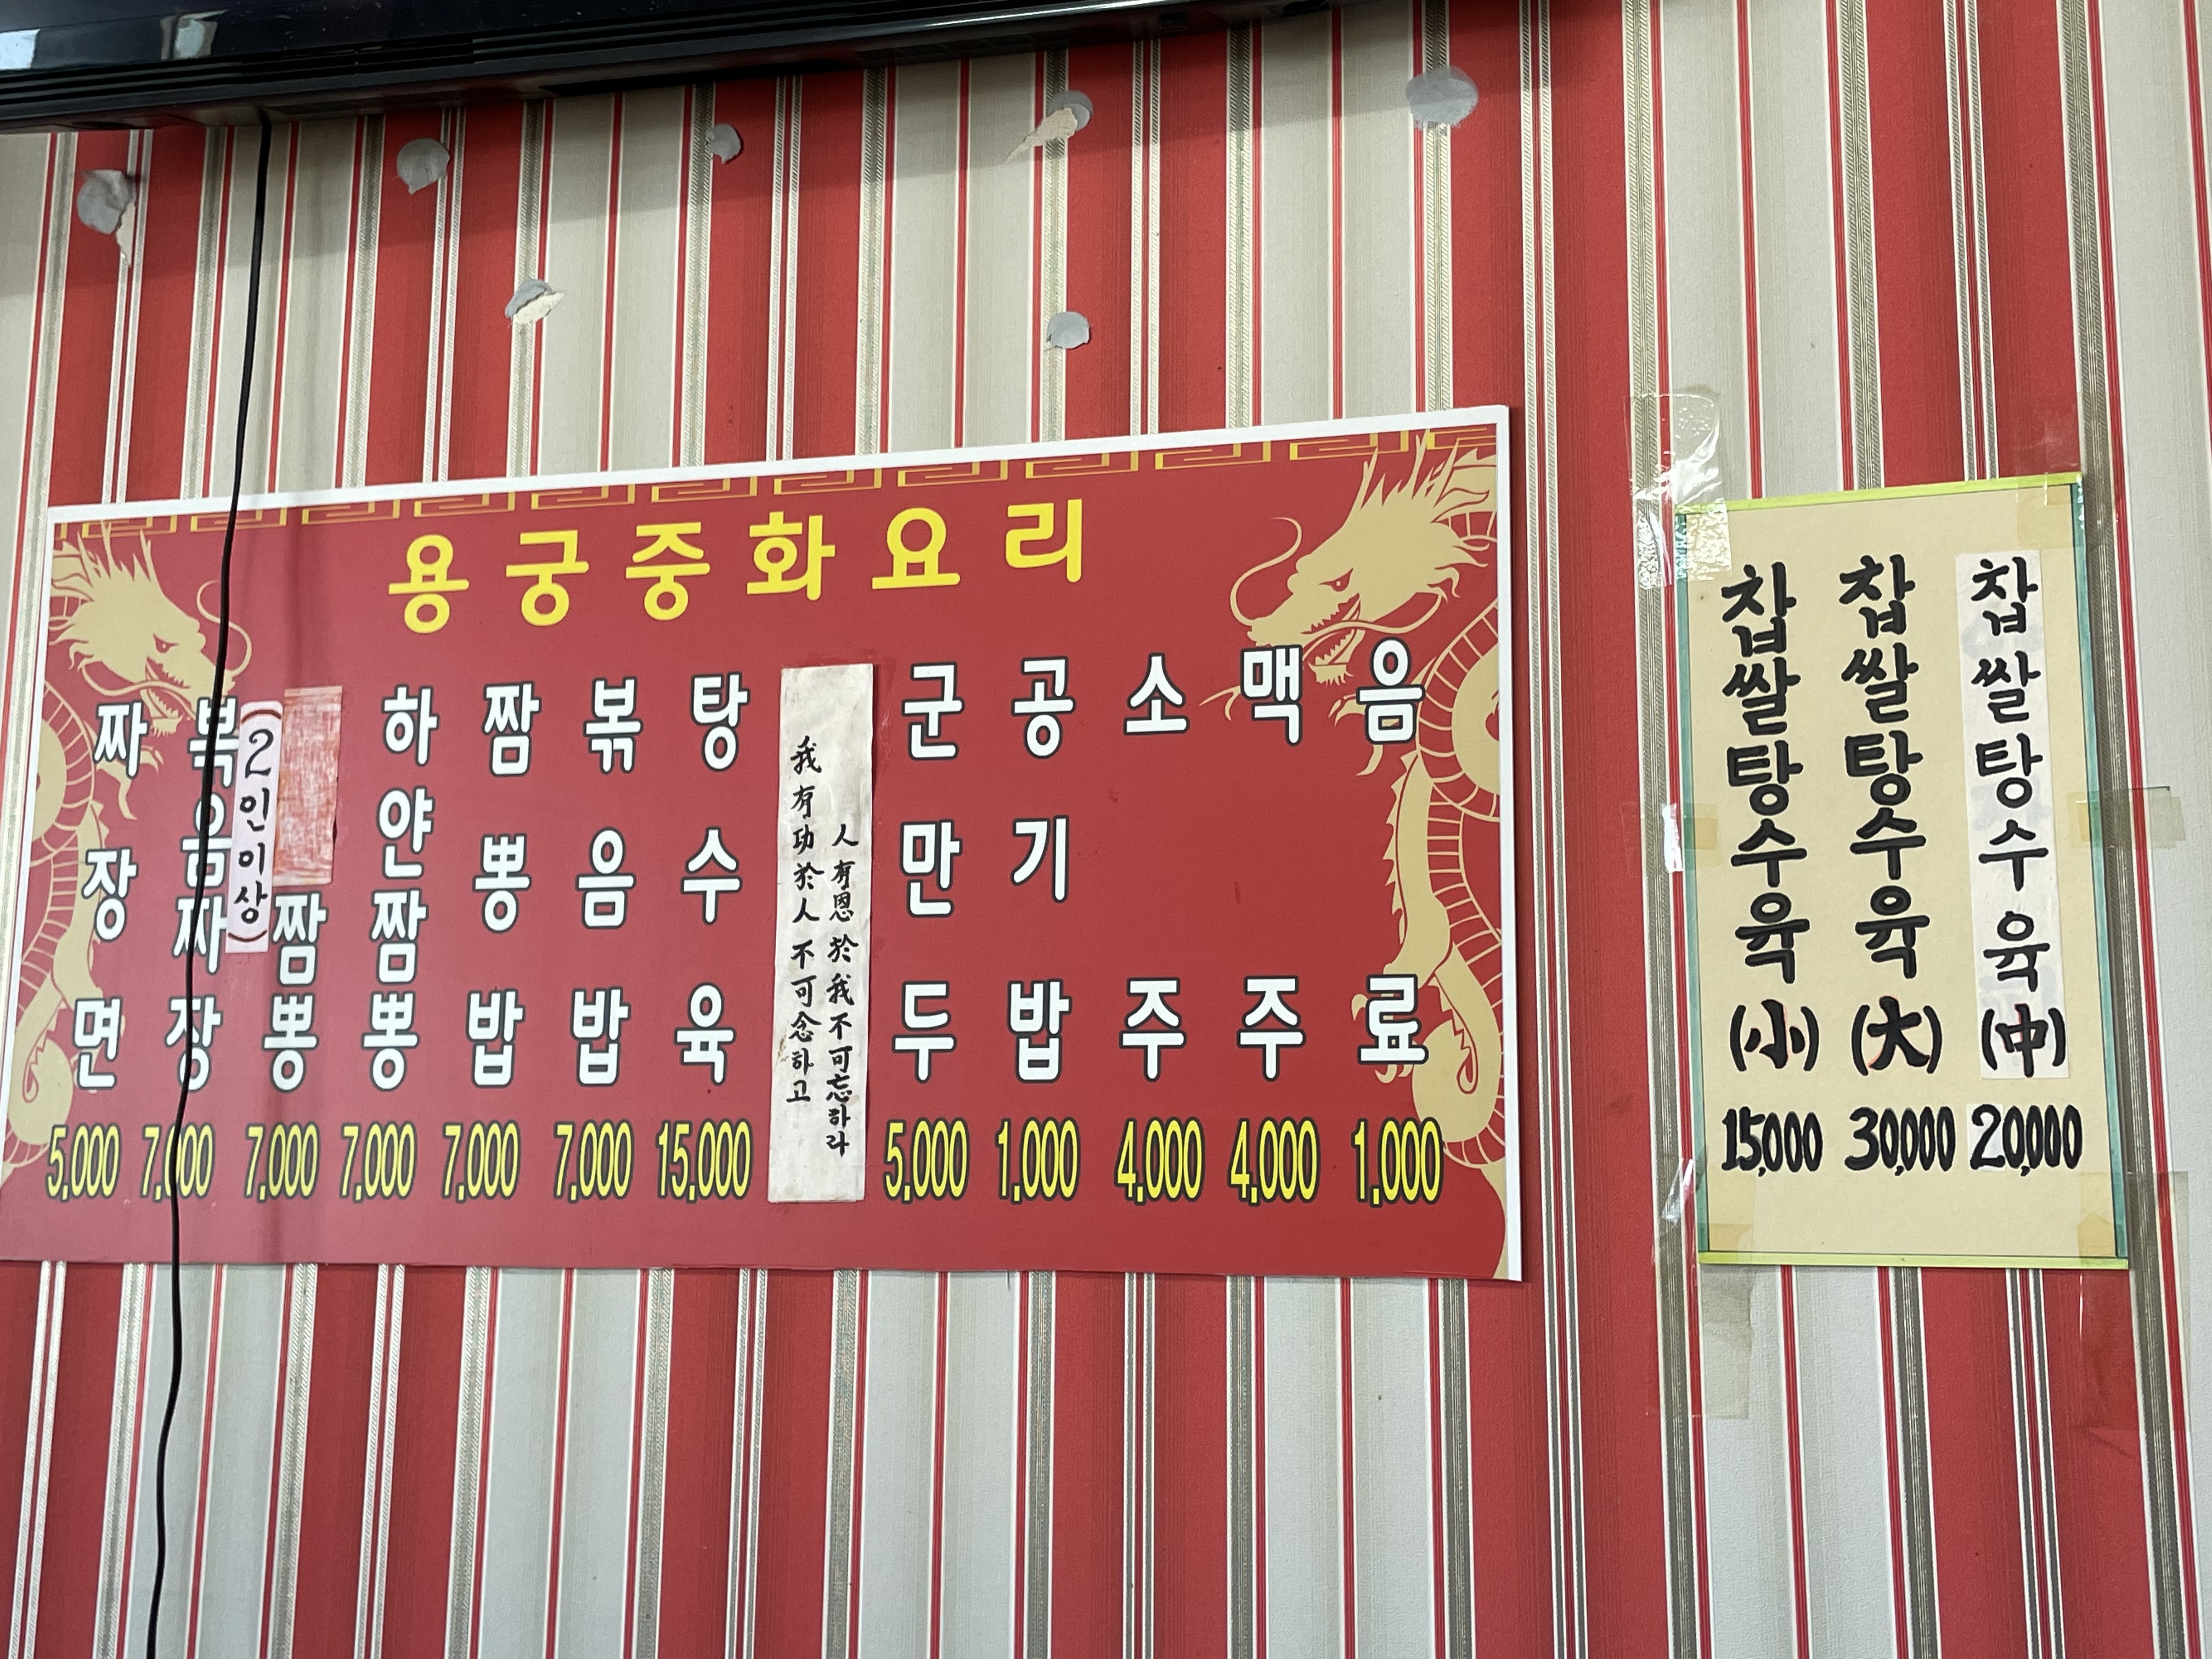 용궁중화요리
짜장면 5,000
볶음짜장 7,000
(2인이상)
짬뽕 7,000
하얀짬뽕 7,000
짬뽕밥 7,000
볶음밥 7,000
탕수육 15,000
我有功於人不可念하고
人有恩於我不可忘하라
군만두 5,000
공기밥 1,000
소주 4,000
맥주 4,000
음료 1,000
찹쌀탕수육(小) 15,000
찹쌀탕수육(大) 30,000
찹쌀탕수육(中) 20,000